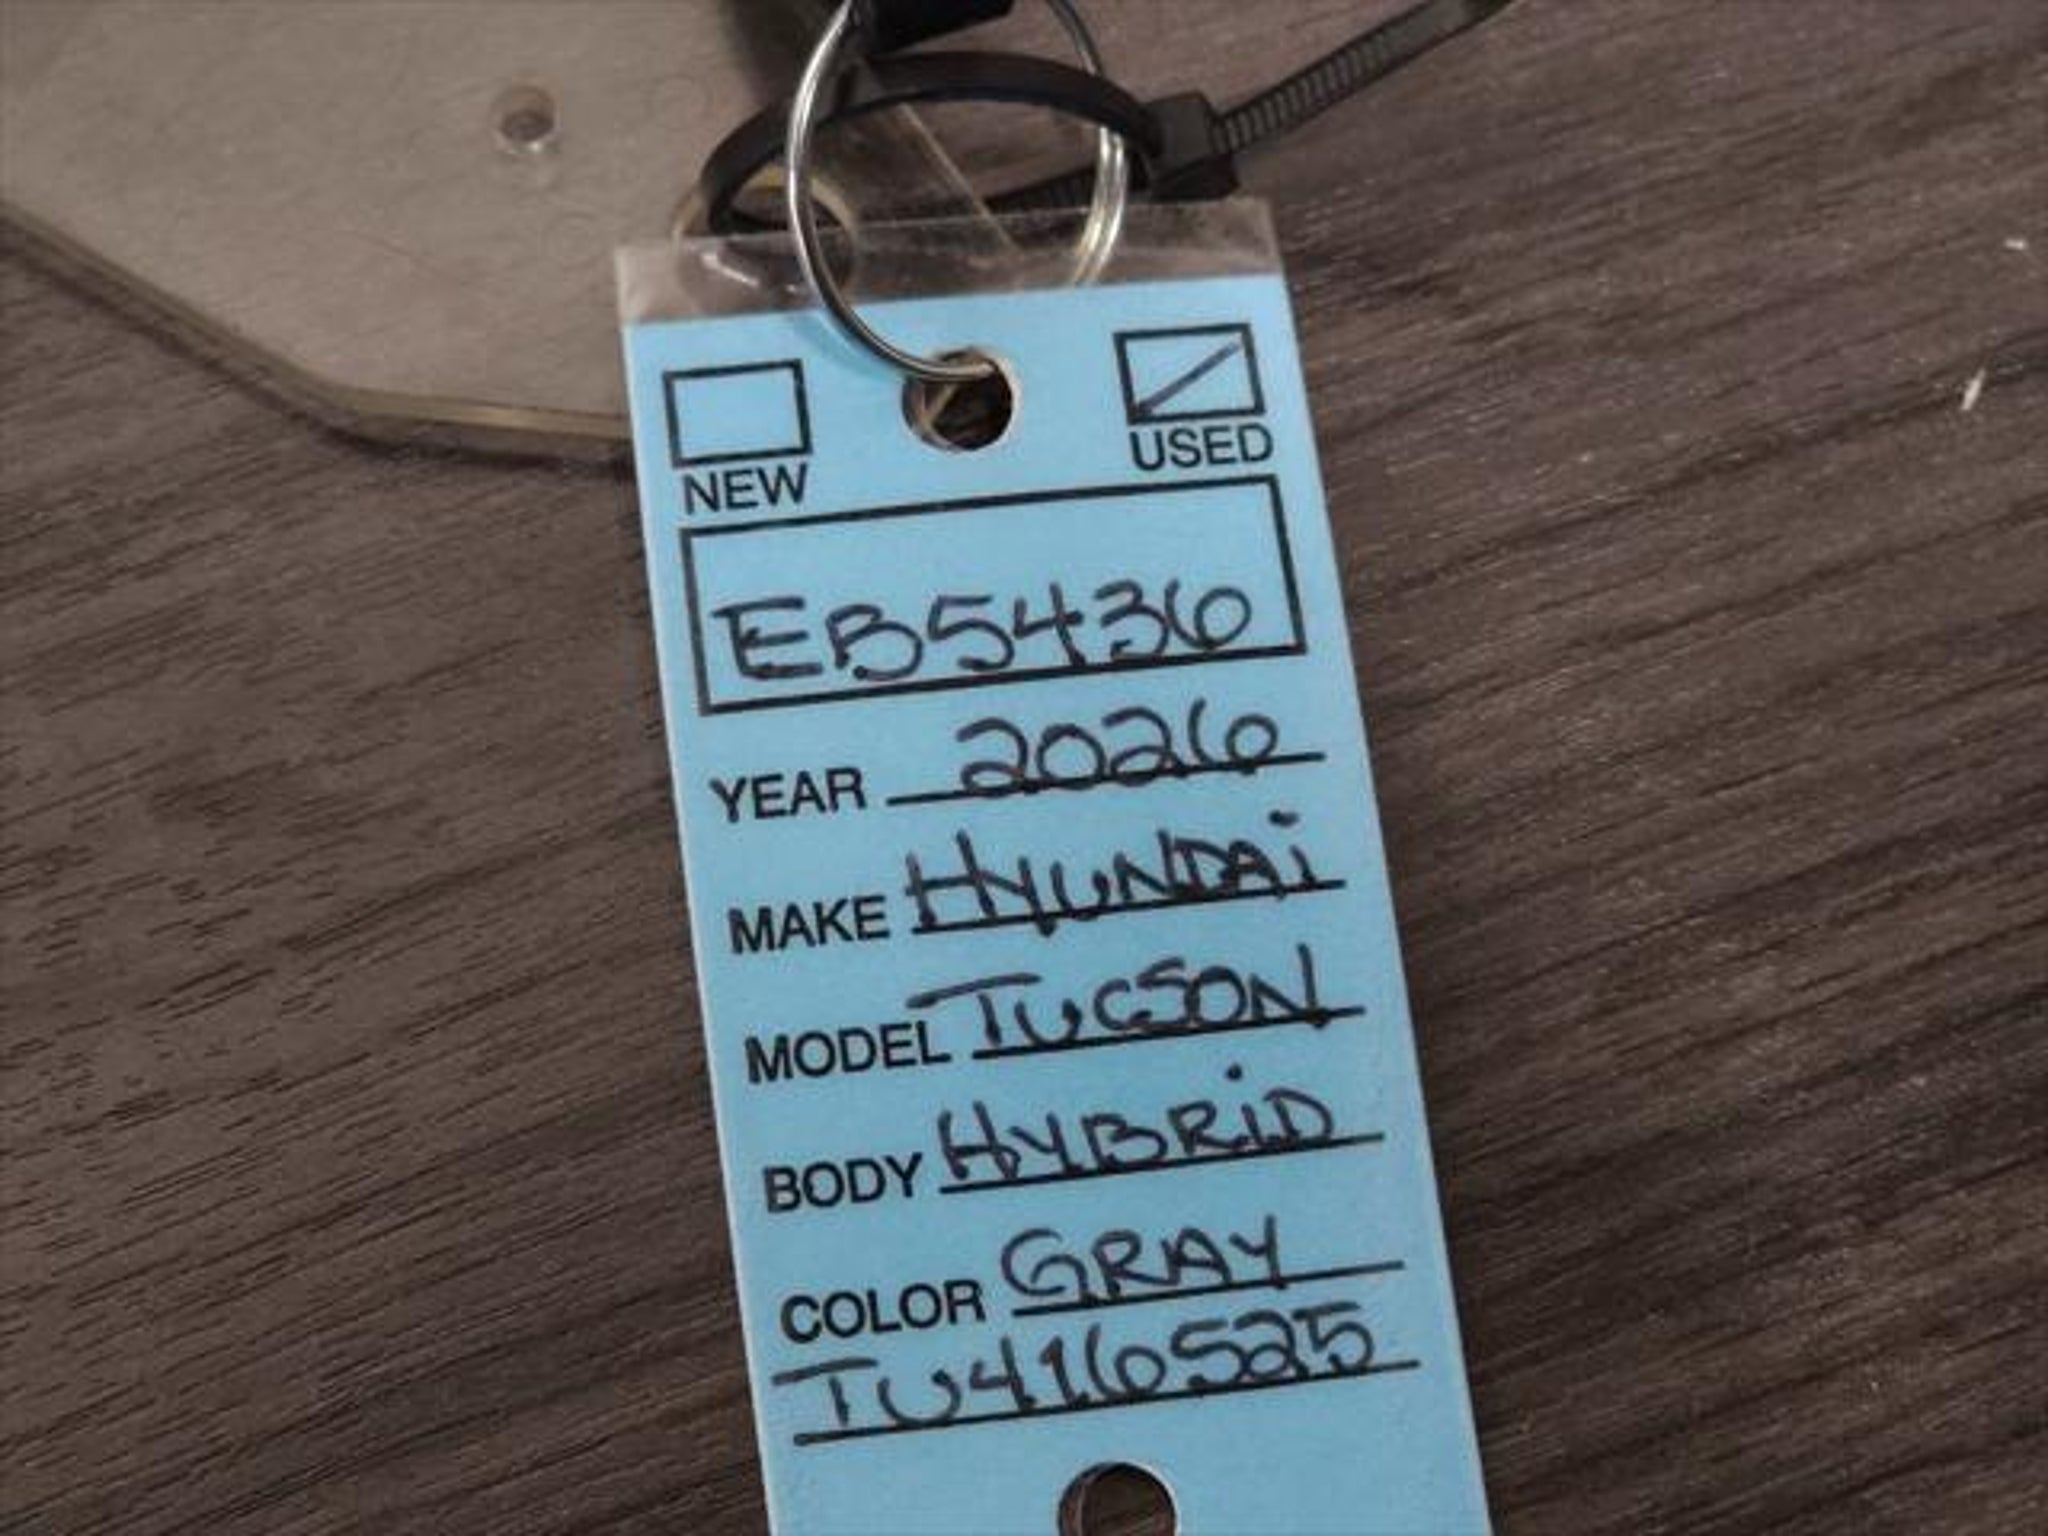 NEW USED
EB5436
YEAR 2026
MAKE HYUNDAi
MODEL TUCSON
BODY HYBRiD
COLOR GRAY
TU416525